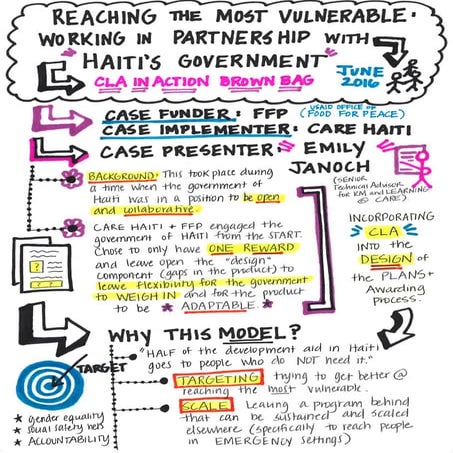 REACHING THE MOST VULNERABLE:
WORKING IN PARTNERSHIP WITH
HAITI'S GOVERNMENT"
CLA IN ACTION BROWN BAG
JUNE
2016
CASE FUNDER: FFP (USAID OFFICE OF
FOOD FOR PEACE)
CASE IMPLEMENTER: CARE HAITI
CASE PRESENTER: EMILY
JANOCH
(SENIOR
Technical Advisor
for KM and LEARNING
@ CARE)
BACKGROUND: This took place during
a time when the government of
Haiti was in a position to be open
and collaborative.
CARE HAITI + FFP engaged the
government of HAITI from the START.
Chose to only have ONE REWARD
and leave open the "design"
component (gaps in the product) to
leave flexibility for the government
to WEIGH IN and for the product
to be ★ ADAPTABLE. ★
INCORPORATING
CLA
INTO the
DESIGN of
the PLANS +
Awarding
process.
?
?
WHY THIS MODEL?
"HALF of the development aid in Haiti
goes to people who do NOT need it."
TARGETING trying to get better @
reaching the most vulnerable.
SCALE Leaving a program behind
that can be sustained and scaled
elsewhere (specifically to reach people
in EMERGENCY settings)
TARGET
★ gender equality
★ social safety nets
★ ACCOUNTABILITY